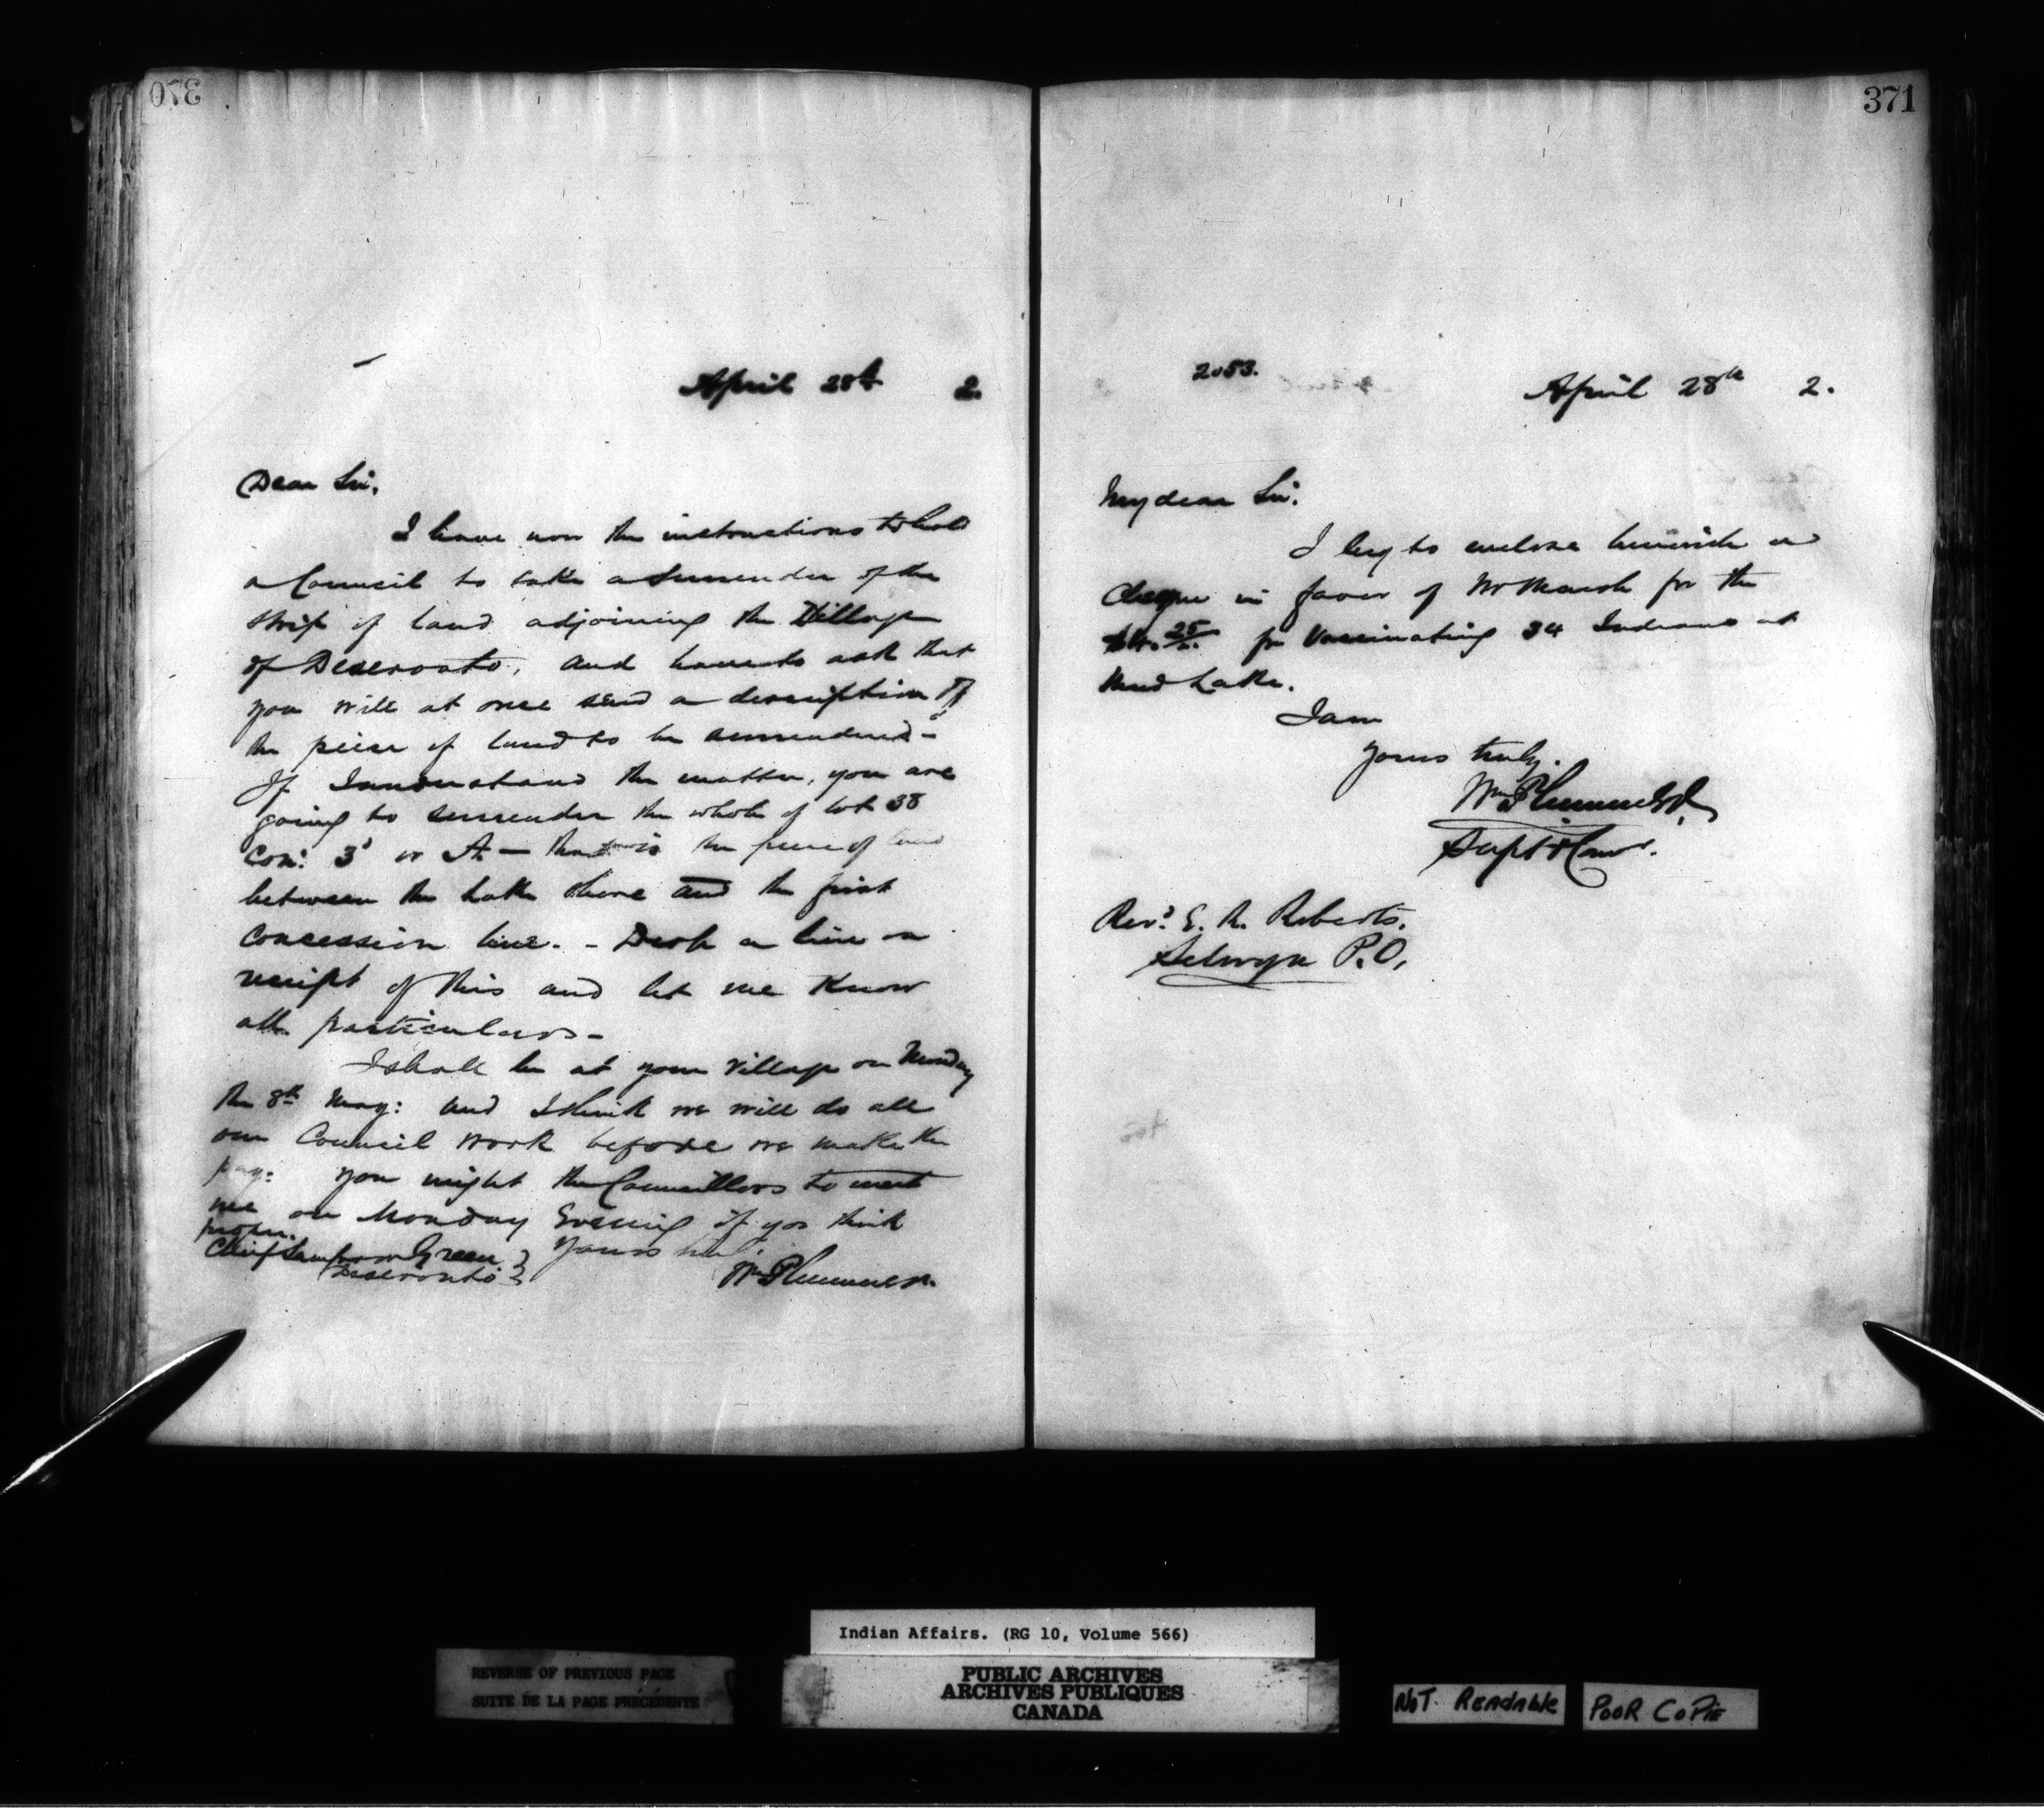 370
April 28th 2.
Dear Sir,
I have now the instructions to hold
a Council to take a Surrender of the
strip of land adjoining the Village
of Deseronto, and have to ask that
you will at once send a description of
the piece of land to be surrendered -
If I understand the matter, you are
going to surrender the whole of lot 38
Con: 3 or A - that is the piece of land
between the Lake Shore and the first
concession line. - Drop a line on
receipt of this and let me Know
all particulars -
I shall be at your Village on Monday
the 8th May: and I think we will do all
our Council work before we make the
pay: you might the Councillors to meet
me on Monday Evening if you think
proper.
Yours truly
Chief Sampson Green
Deseronto
Wm Plummer.
371
2053.
April 28th 2.
My dear Sir.
I beg to enclose herewith a
Cheque in favor of Mr March for the
25 for Vaccinating 34 Indians at
Mud Lake.
I am
Yours truly.
Wm Plummer
Supt & Comr.
Revd. E. R. Roberts.
Selwyn P.O.
Indian Affairs. (RG 10, Volume 566)
REVERSE OF PREVIOUS PAGE
SUITE DE LA PAGE PRÉCÉDENTE
PUBLIC ARCHIVES
ARCHIVES PUBLIQUES
CANADA
NOT READABLE
POOR COPIE